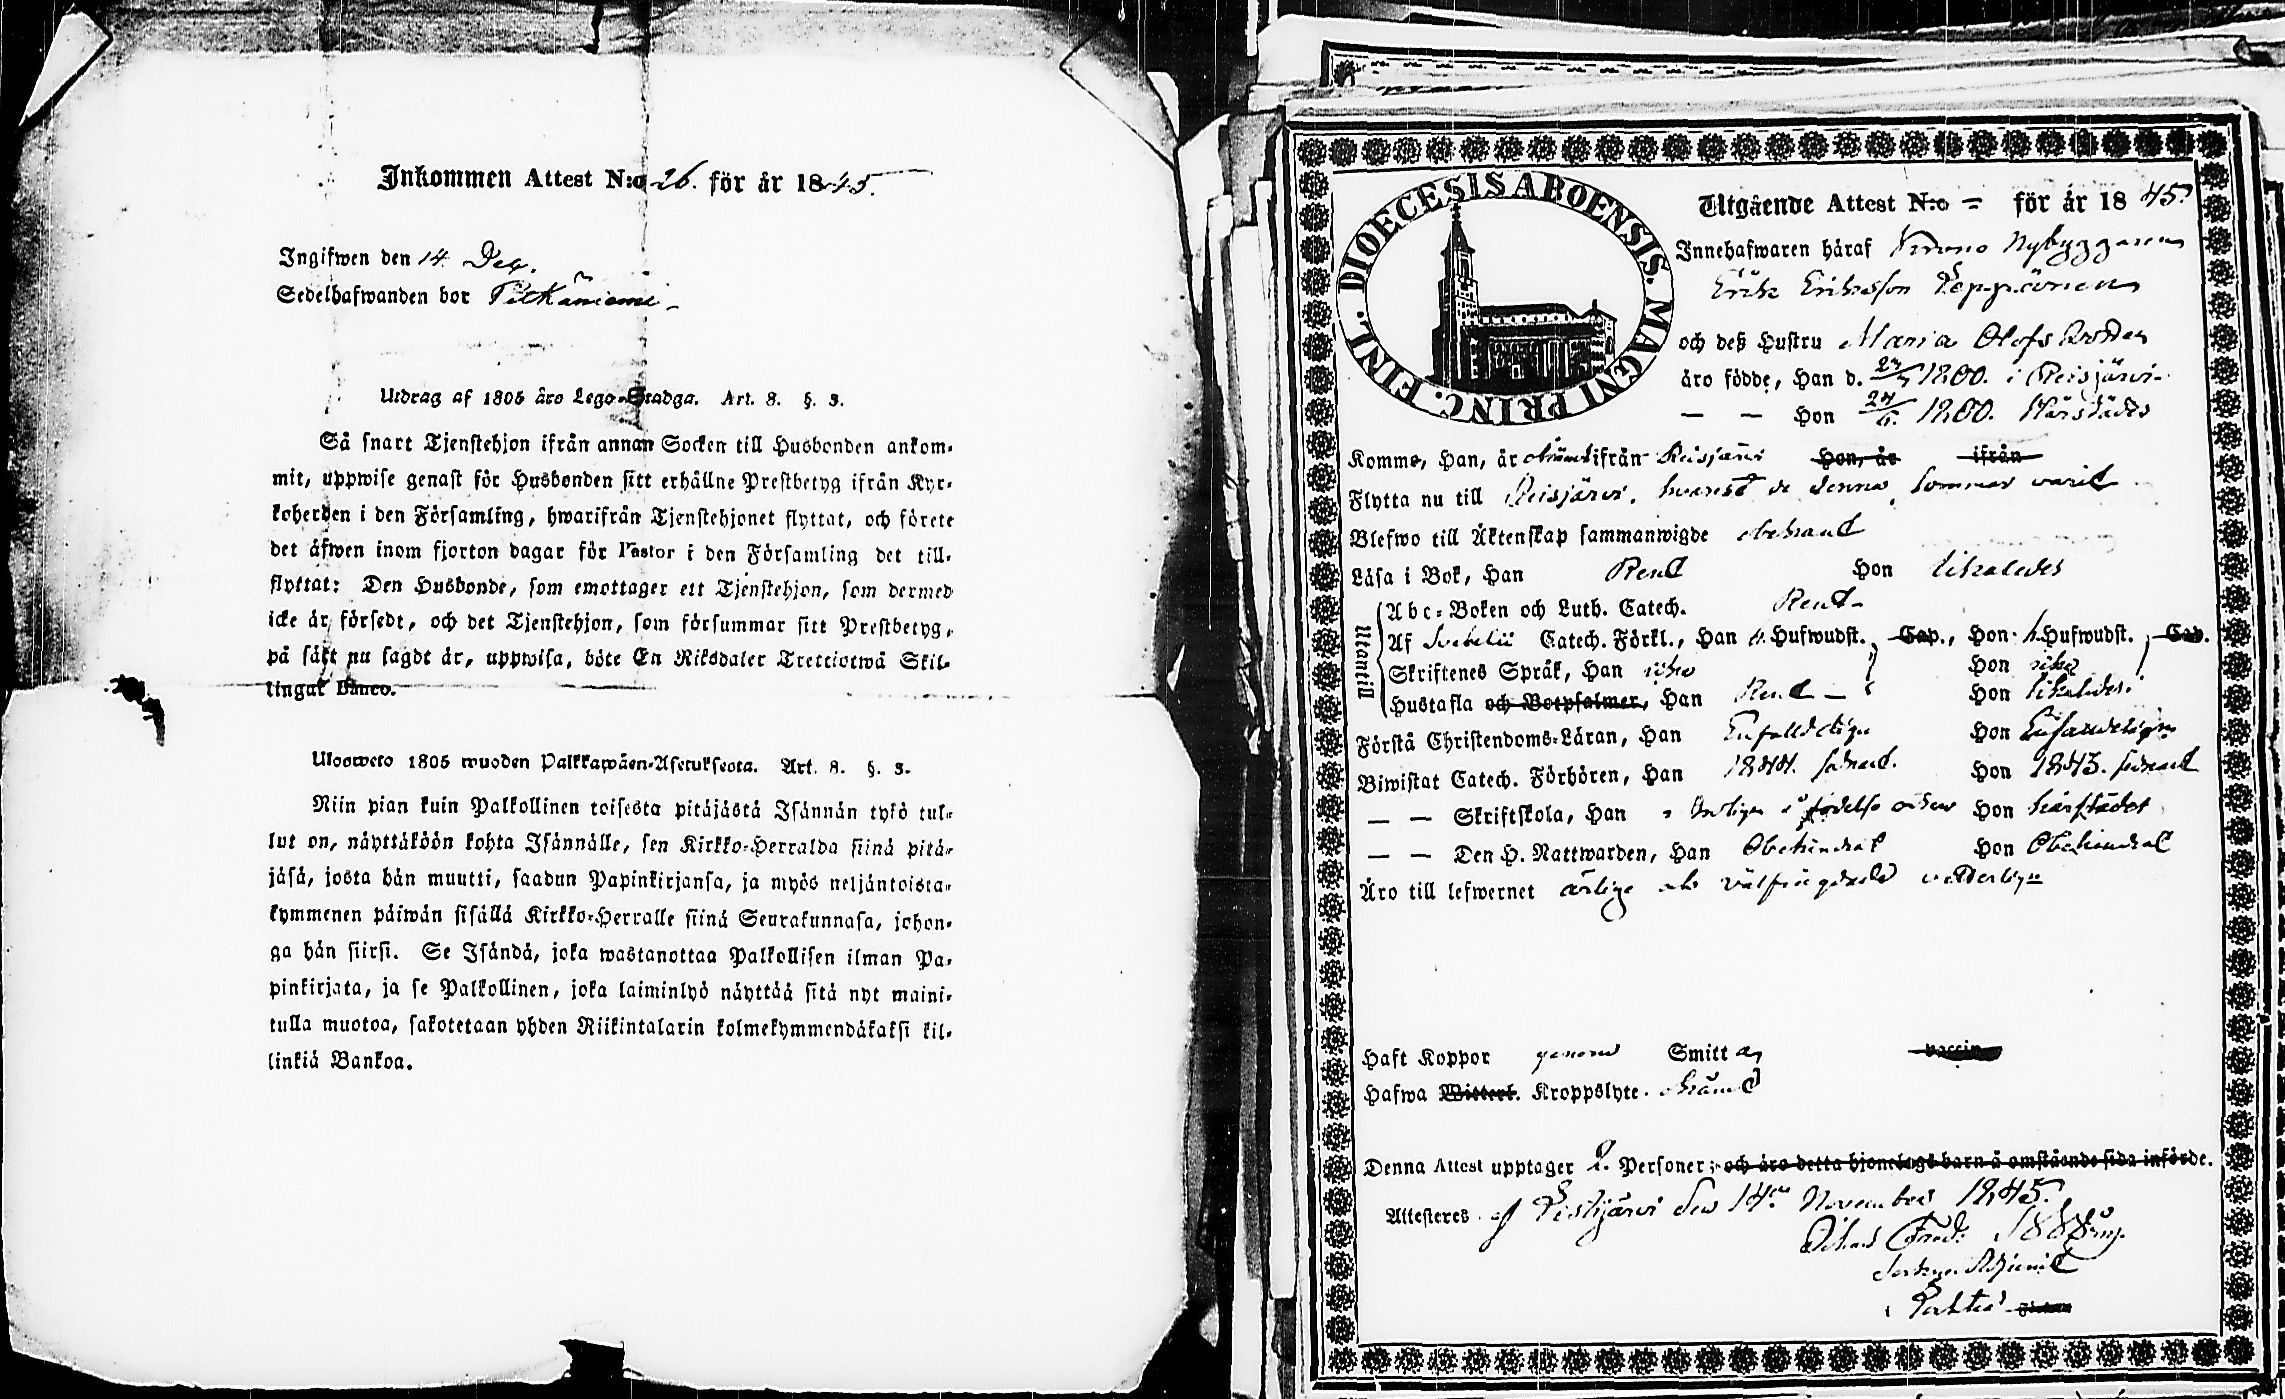 Inkommen Attest N:o 26. för år 1845.
Ingifwen den 14 Dec.
Sedelhafwanden bor Pitkäniemi
Utdrag af 1805 års Lego-Stadga. Art. 8. §. 3.
Så snart Tjenstehjon ifrån annan Socken till Husbonden ankom-
mit, uppwise genast för Husbonden sitt erhållne Prestbetyg ifrån Kyr-
koherden i den Församling, hwarifrån Tjenstehjonet flyttat, och förete
det äfwen inom fjorton dagar för Pastor i den Församling det till-
flyttat: Den Husbonde, som emottager ett Tjenstehjon, som dermed
icke är försedt, och det Tjenstehjon, som försummar sitt Prestbetyg,
på sätt nu sagdt är, uppwisa, böte En Riksdaler Trettiotwå Skil-
lingar Banco.
Ulosweto 1805 wuoden Palkkawäen-Asetuksesta. Art. 8. §. 3.
Niin pian kuin Palkollinen toisesta pitäjästä Isännän tykö tul-
lut on, näyttäköön kohta Isännälle, sen Kirkko-Herralda siinä pitä-
jäsä, josta hän muutti, saadun Papinkirjansa, ja myös neljäntoista-
kymmenen päiwän sisällä Kirkko-Herralle siinä Seurakunnasa, johon-
ga hän siirsi. Se Isändä, joka wastanottaa Palkollisen ilman Pa-
pinkirjata, ja se Palkollinen, joka laiminlyö näyttää sitä nyt maini-
tulla muotoa, sakotetaan yhden Riikintalarin kolmekymmendäkaksi kil-
linkiä Bankoa.
DIOECESIS ABOENSIS. MAGNI PRINC. FINL.
Utgående Attest N:o = för år 1845.
Innehafwaren häraf Nybyggaren
Erik Eriksson Leppänen
och deß Hustru Maria Olofsdotter
äro födde, Han d. 1800. i Reisjärvi
— — Hon 1800. Härstädes
Komme, Han, är ifrån Reisjärvi Hon, är ifrån
Flytta nu till Reisjärvi, hvarest de denna sommar varit
Blefwo till Äktenskap sammanwigde obekant
Läsa i Bok, Han Rent Hon likaledes
Utantill
Abc-Boken och Luth. Catech. Rent
Af Svebelii Catech. Förkl., Han 4 Hufwudst., Cap., Hon Hufwudst. Cap.
Skriftenes Språk, Han icke Hon icke
Hustafla och Botpsalmer, Han Rent Hon likaledes
Förstå Christendoms-Läran, Han Enfalldeligen Hon Enfaldeligen
Biwistat Catech. Förhören, Han 1844. Hon 1843.
— — Skriftskola, Han Hon härstädes
— — Den H. Nattwarden, Han Obehindrat Hon Obehindrat
Äro till lefwernet ärlige och välfrägdade
Haft Koppor genom Smitta, vaccin
Hafwa Wittert. Kroppslyte. okänd
Denna Attest upptager 2. Personer; och äro detta hjonelags barn å omstående sida införde.
Attesteres af Pestijärvi den 14de November 1845.